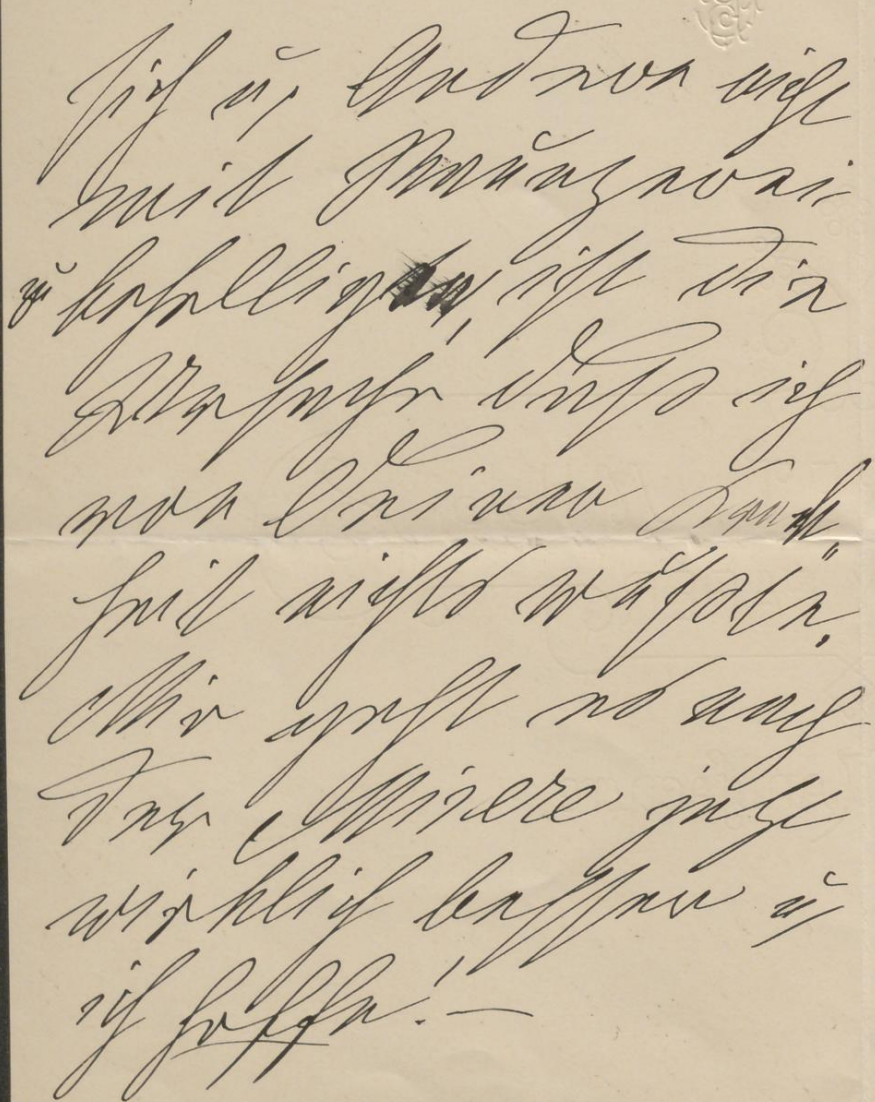 sich u. Andren nicht
mit Krankh[...]
zu behelligen, ist die
Ursache daß ich
von Deiner Krank-
heit nichts wußte.
Mir geht es nach
der Misere jetzt
wirklich besser u.
ich hoffe! —